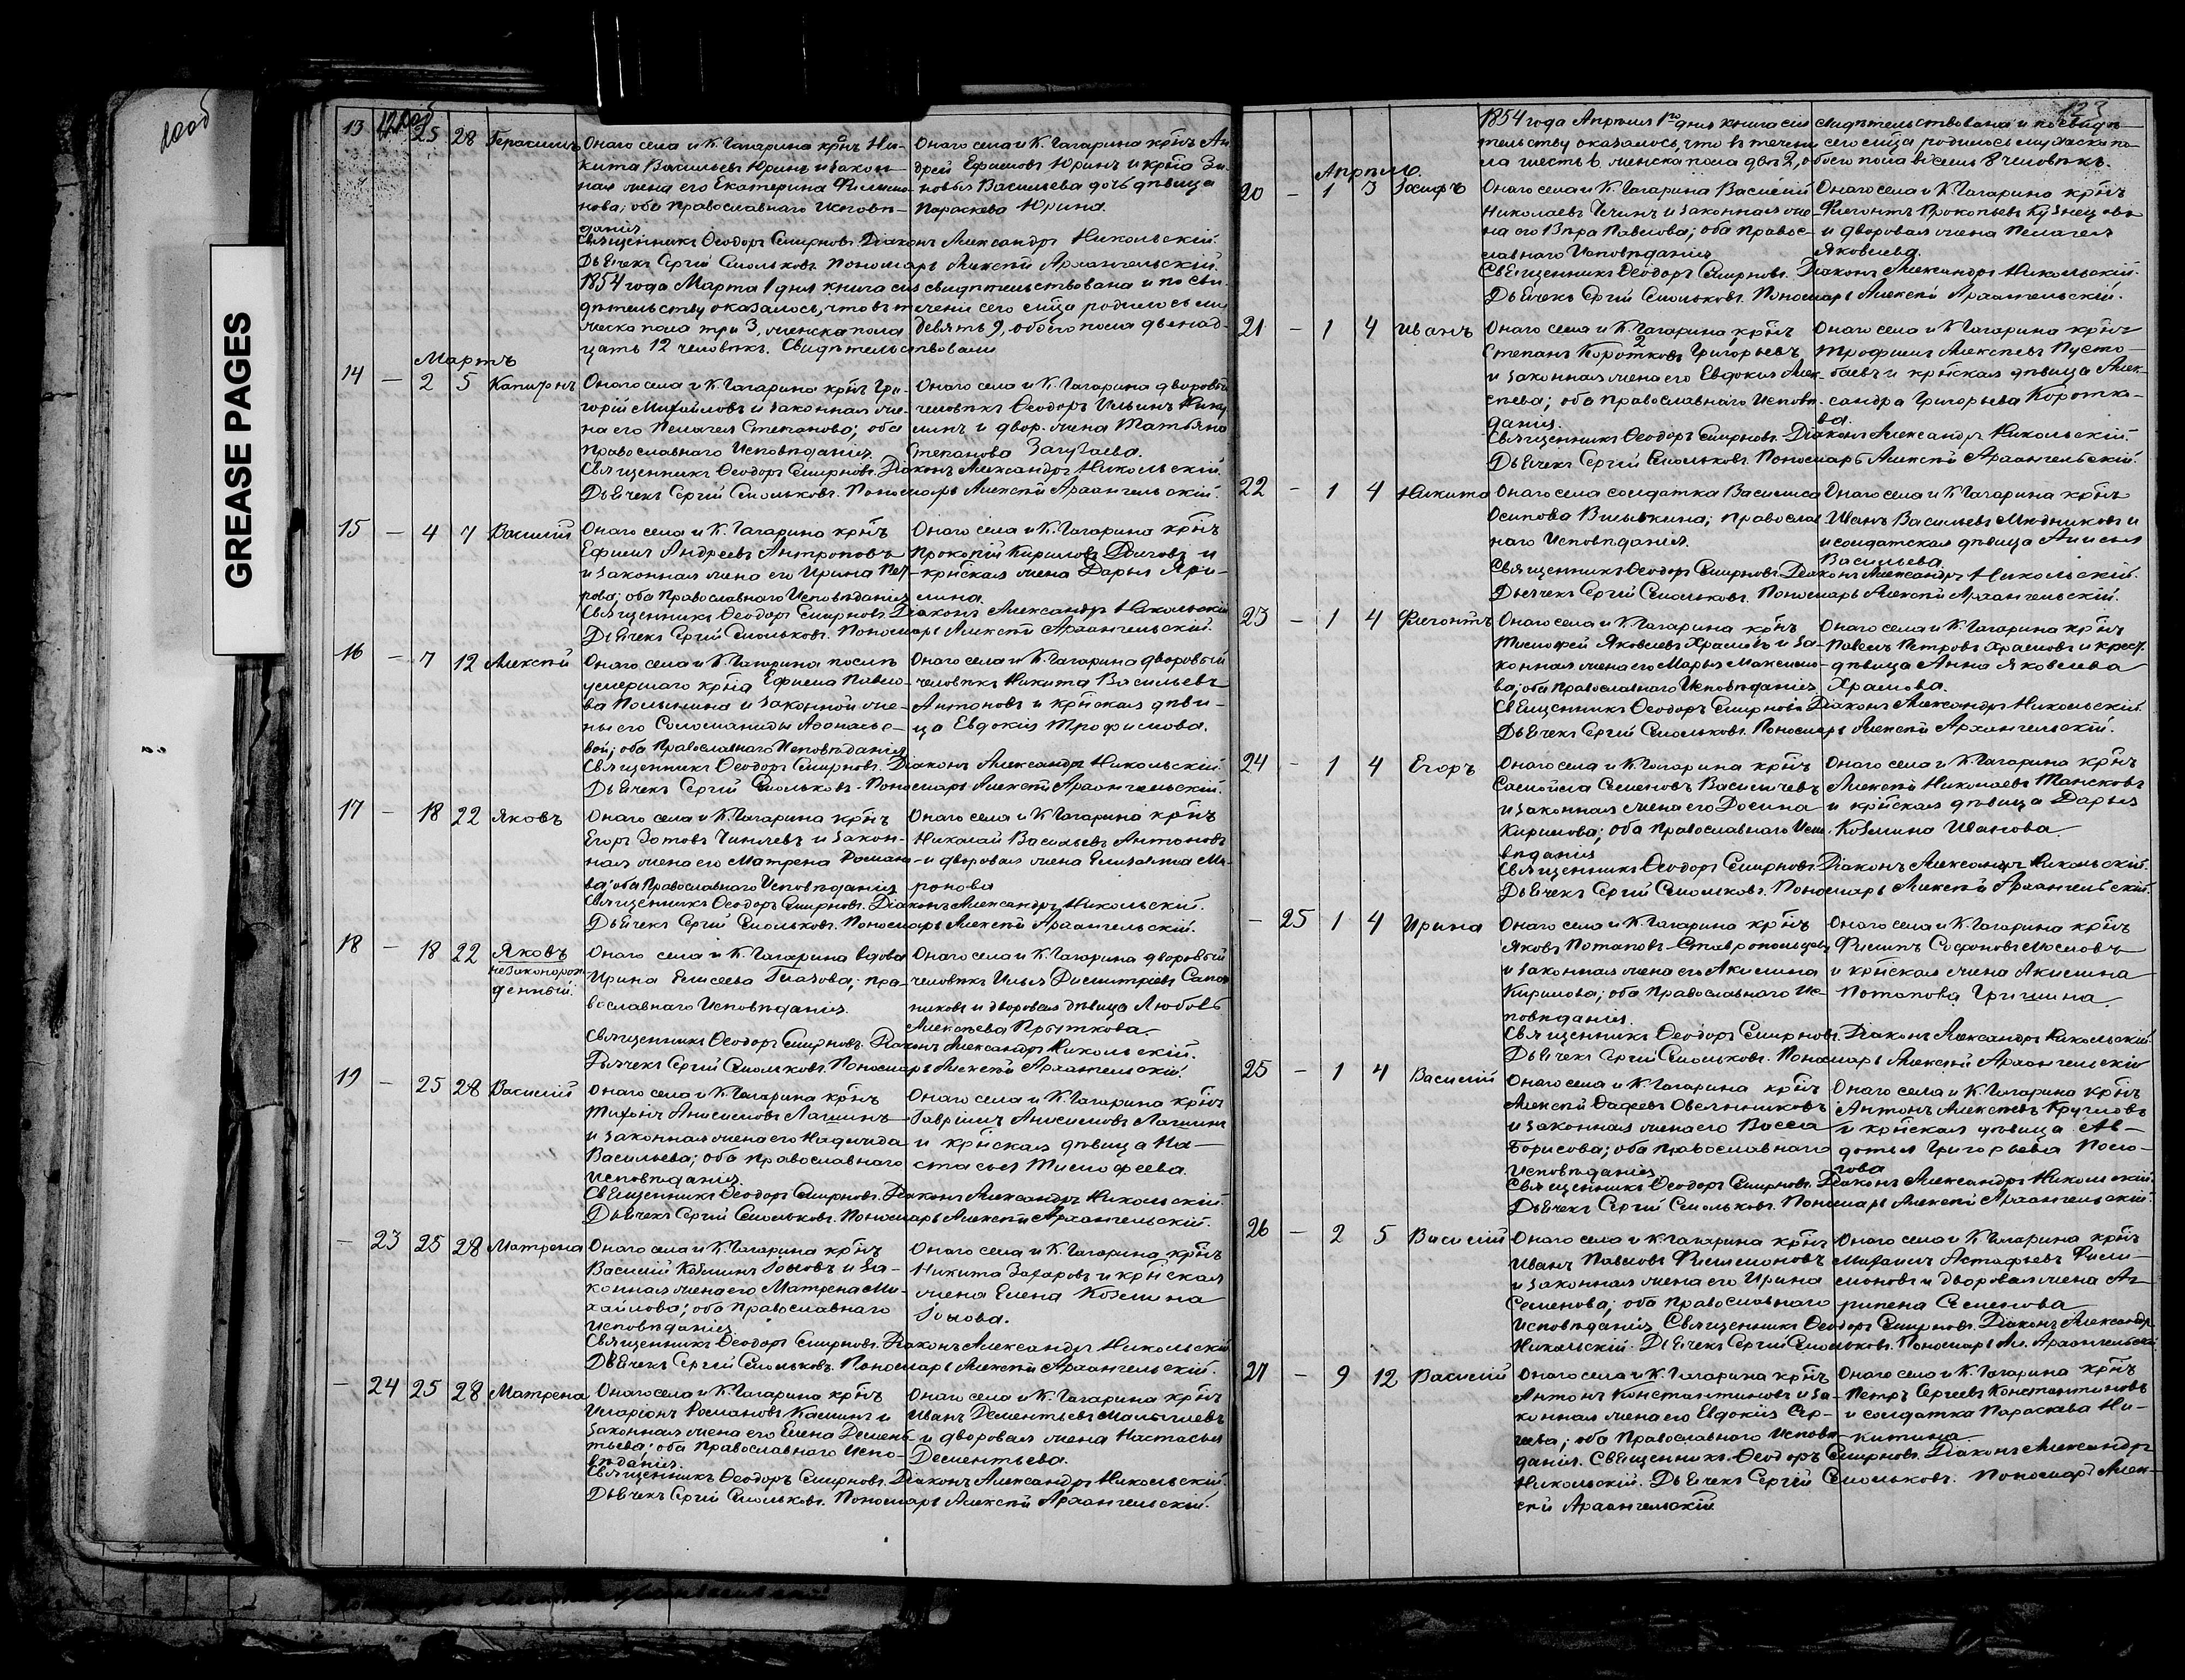 GREASE PAGES
13 25 28 Герасимъ Онаго села и К. Гагарина крнъ Ни-
кита Васильевъ Юринъ и закон-
ная жена его Екатерина Филимо-
нова; оба Православнаго Исповѣ-
данія
Онаго села и К. Гагарина крнъ Ан
дрей Ефимовъ Юринъ и крна Зи-
новья Васильева дочь дѣвица
Параскева Юрина.
Священникъ Ѳеодоръ Смирновъ. Діаконъ Александръ Никольскій.
Дьячекъ Сергій Смольковъ. Пономарь Алексѣй Архангельскій.
1854 года Марта 1 дня книга сія свидѣтельствована и по сви-
дѣтельству оказалось, что въ теченіи сего м̃ца родилось му
жеска пола три 3, женска пола девять 9, обоего пола двенад-
цать 12 человѣкъ. Свидѣтельствовали
Мартъ
14 — 2 5 Капитонъ Онаго села и К. Гагарина крнъ Гри-
горій Михайловъ и законная же-
на его Пелагея Степанова; оба
Православнаго Исповѣданія
Онаго села и К. Гагарина дворовый
человѣкъ Ѳеодоръ Ильинъ
и двор. жена Татьяна
Степанова
Священникъ Ѳеодоръ Смирновъ. Діаконъ Александръ Никольскій.
Дьячекъ Сергій Смольковъ. Пономарь Алексѣй Архангельскій.
15 — 4 7 Василій Онаго села и К. Гагарина крнъ
Ефимъ Андреевъ Антроповъ
и законная жена его Ирина Пет-
рова; оба Православнаго Исповѣданія
Онаго села и К. Гагарина крнъ
Прокопій Кириловъ Долговъ и
крнская жена Дарья Яри-
лина.
Священникъ Ѳеодоръ Смирновъ. Діаконъ Александръ Никольскій
Дьячекъ Сергій Смольковъ. Пономарь Алексѣй Архангельскій.
16 — 7 12 Алексѣй Онаго села и К. Гагарина послѣ
умершаго крна Ефима Павло-
ва Полынина и законной же-
ны его Соломаниды Аѳанасье-
вой; оба Православнаго Исповѣданія
Онаго села и К. Гагарина дворовый
человѣкъ Никита Васильевъ
Антоновъ и крнская дѣви-
ца Евдокія Трофимова.
Священникъ Ѳеодоръ Смирновъ. Діаконъ Александръ Никольскій.
Дьячекъ Сергій Смольковъ. Пономарь Алексѣй Архангельскій.
17 — 18 22 Яковъ Онаго села и К. Гагарина крнъ
Егоръ Зотовъ и закон-
ная жена его Матрена Романо-
ва; оба Православнаго Исповѣданія
Онаго села и К. Гагарина крнъ
Николай Васильевъ Антоновъ
и дворовая жена Елизавета Ми-
ронова
Священникъ Ѳеодоръ Смирновъ. Діаконъ Александръ Никольскій.
Дьячекъ Сергій Смольковъ. Пономарь Алексѣй Архангельскій.
18 — 18 22 Яковъ
незаконорож-
денный.
Онаго села и К. Гагарина вдова
Ирина Елисеева Глазова; пра-
вославнаго Исповѣданія.
Онаго села и К. Гагарина дворовый
человѣкъ Илья Димитріевъ Сапож
никовъ и дворовая дѣвица Любовь
Алексѣева Прыткова.
Священникъ Ѳеодоръ Смирновъ. Діаконъ Александръ Никольскій.
Дьячекъ Сергій Смольковъ. Пономарь Алексѣй Архангельскій.
19 — 25 28 Василій Онаго села и К. Гагарина крнъ
Тихонъ Анисимовъ Лагшинъ
и законная жена его Надежда
Васильева; оба православнаго
Исповѣданія.
Онаго села и К. Гагарина крнъ
Гаврилъ Анисимовъ Лагшинъ
и крнская дѣвица На-
стасья Тимофеева.
Священникъ Ѳеодоръ Смирновъ. Діаконъ Александръ Никольскій.
Дьячекъ Сергій Смольковъ. Пономарь Алексѣй Архангельскій.
— 23 25 28 Матрена Онаго села и К. Гагарина крнъ
Василій Козминъ и за-
конная жена его Матрена Ми-
хайлова; оба православнаго
Исповѣданія
Онаго села и К. Гагарина крнъ
Никита Захаровъ и крнская
жена Елена Козмина
Священникъ Ѳеодоръ Смирновъ. Діаконъ Александръ Никольскій
Дьячекъ Сергій Смольковъ. Пономарь Алексѣй Архангельскій.
— 24 25 28 Матрена Онаго села и К. Гагарина крнъ
Иларіонъ Романовъ Кашинъ и
законная жена его Елена Демень-
тьева; оба Православнаго Испо-
вѣданія.
Онаго села и К. Гагарина крнъ
Иванъ Дементьевъ Малышевъ
и дворовая жена Настасья
Дементьева.
Священникъ Ѳеодоръ Смирновъ. Діаконъ Александръ Никольскій.
Дьячекъ Сергій Смольковъ. Пономарь Алексѣй Архангельскій.
123
1854 года Апрѣля 1го дня книга сія свидѣтельствована и по свидѣ-
тельству оказалось, что въ теченіи сего м̃ца родилось мужеска по-
ла шесть 6 женска пола двѣ 2, обоего пола восемь 8 человѣкъ.
Апрѣль.
20 — 1 3 Іосифъ Онаго села и К. Гагарина Василій
Николаевъ и законная же-
на его Павлова; оба Право-
славнаго Исповѣданія
Онаго села и К. Гагарина крнъ
Флегонтъ Прокопьевъ Кузнецовъ
и дворовая жена Пелагея
Яковлева.
Священникъ Ѳеодоръ Смирновъ. Діаконъ Александръ Никольскій.
Дьячекъ Сергій Смольковъ. Пономарь Алексѣй Архангельскій.
21 — 1 4 Иванъ Онаго села и К. Гагарина крнъ
2
Степанъ Коротковъ Григорьевъ
и законная жена его Евдокія Алек-
сѣева; оба православнаго Исповѣ-
данія.
Онаго села и К. Гагарина крнъ
Трофимъ Алексѣевъ Пусто-
баевъ и крнская дѣвица Алек-
сандра Григорьева Коротко-
ва.
Священникъ Ѳеодоръ Смирновъ. Діаконъ Александръ Никольскій.
Дьячекъ Сергій Смольковъ. Пономарь Алексѣй Архангельскій.
22 — 1 4 Никита Онаго села солдатка Василиса
Осипова; Православ
наго Исповѣданія.
Онаго села и К. Гагарина крнъ
Иванъ Васильевъ Мѣдниковъ и
и солдатская дѣвица Анисья
Васильева.
Священникъ Ѳеодоръ Смирновъ. Діаконъ Александръ Никольскій.
Дьячекъ Сергій Смольковъ. Пономарь Алексѣй Архангельскій.
23 — 1 4 Флегонтъ Онаго села и К. Гагарина крнъ
Тимофей Яковлевъ Храмовъ и за-
конная жена его Марья Максимо-
ва; оба Православнаго Исповѣданія
Онаго села и К. Гагарина крнъ
Павелъ Петровъ Храмовъ и крест.
дѣвица Анна Яковлева
Храмова.
Священникъ Ѳеодоръ Смирновъ. Діаконъ Александръ Никольскій.
Дьячекъ Сергій Смольковъ. Пономарь Алексѣй Архангельскій.
24 — 1 4 Егоръ Онаго села и К. Гагарина крнъ
Самойла Семеновъ Василичевъ
и законная жена его Домна
Кирилова; оба Православнаго Испо-
вѣданія
Онаго села и К. Гагарина крнъ
Алексѣй Николаевъ Тансковъ
и крнская дѣвица Дарья
Козмина Иванова
Священникъ Ѳеодоръ Смирновъ. Діаконъ Александръ Никольскій.
Дьячекъ Сергій Смольковъ. Пономарь Алексѣй Архангельскій.
— 25 1 4 Ирина Онаго села и К. Гагарина крнъ
Яковъ Потаповъ Ставропольцевъ
и законная жена его Акилина
Кирилова; оба Православнаго Ис-
повѣданія.
Онаго села и К. Гагарина крнъ
Филипъ Софоновъ Мословъ
и крнская жена Акилина
Потапова Гришина.
Священникъ Ѳеодоръ Смирновъ. Діаконъ Александръ Никольскій.
Дьячекъ Сергій Смольковъ. Пономарь Алексѣй Архангельскій
25 — 1 4 Василій Онаго села и К. Гагарина крнъ
Алексѣй Фадеевъ Овсянниковъ
и законная жена его Васса
Борисова; оба православнаго
Исповѣданія
Онаго села и К. Гагарина крнъ
Антонъ Алексѣевъ Кругловъ
и крнская дѣвица Ав-
дотья Григорьева Поло-
гова
Священникъ Ѳеодоръ Смирновъ. Діаконъ Александръ Никольскій.
Дьячекъ Сергій Смольковъ. Пономарь Алексѣй Архангельскій.
26 — 2 5 Василій Онаго села и К. Гагарина крнъ
Иванъ Павловъ Филимоновъ
и законная жена его Ирина
Семенова; оба православнаго
Онаго села и К. Гагарина крнъ
Михаилъ Астафьевъ Фили-
моновъ и дворовая жена Аг
рипена Семенова
Исповѣданія Священникъ Ѳеодоръ Смирновъ. Діаконъ Александръ
Никольскій. Дьячекъ Сергій Смольковъ. Пономарь Ал. Архангельскій.
27 — 9 12 Василій Онаго села и К. Гагарина крнъ
Антонъ Константиновъ и за-
конная жена его Евдокія Сер-
геева; оба Православнаго Исповѣ-
Онаго села и К. Гагарина крнъ
Петръ Сергеевъ Константиновъ
и солдатка Параскева Ни-
китина
данія. Священникъ Ѳеодоръ Смирновъ. Діаконъ Александръ
Никольскій. Дьячекъ Сергій Смольковъ. Пономарь Алек-
сѣй Архангельскій